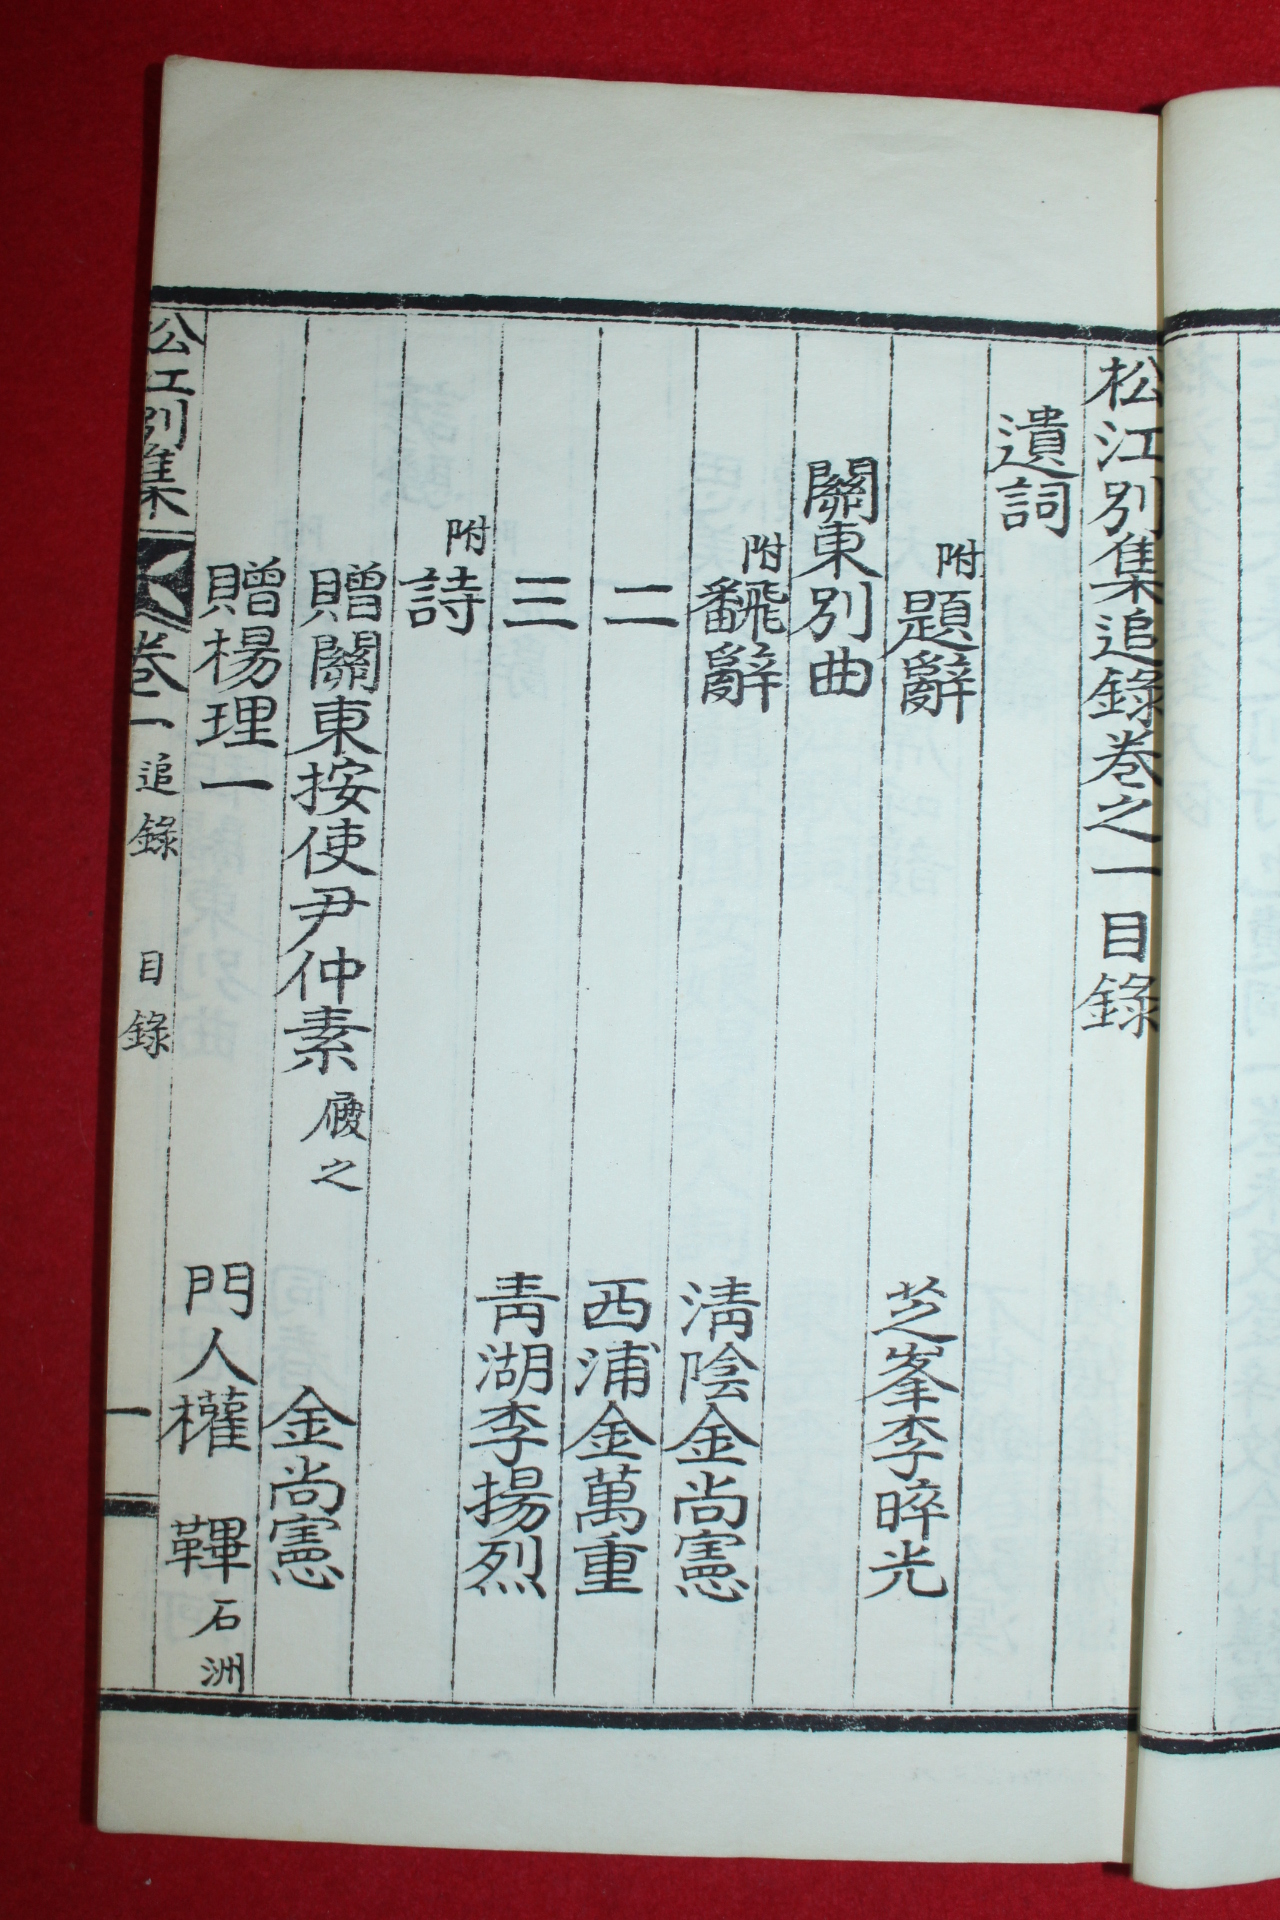 松江別集追錄卷之一目錄
遺詞
附題辭 芝峯李晬光
關東別曲
附飜辭 淸陰金尚憲
二 西浦金萬重
三 靑湖李揚烈
附詩
贈關東按使尹仲素履之 金尚憲
贈楊理一 門人權鞸石洲
松江別集 卷一 追錄 目錄 一